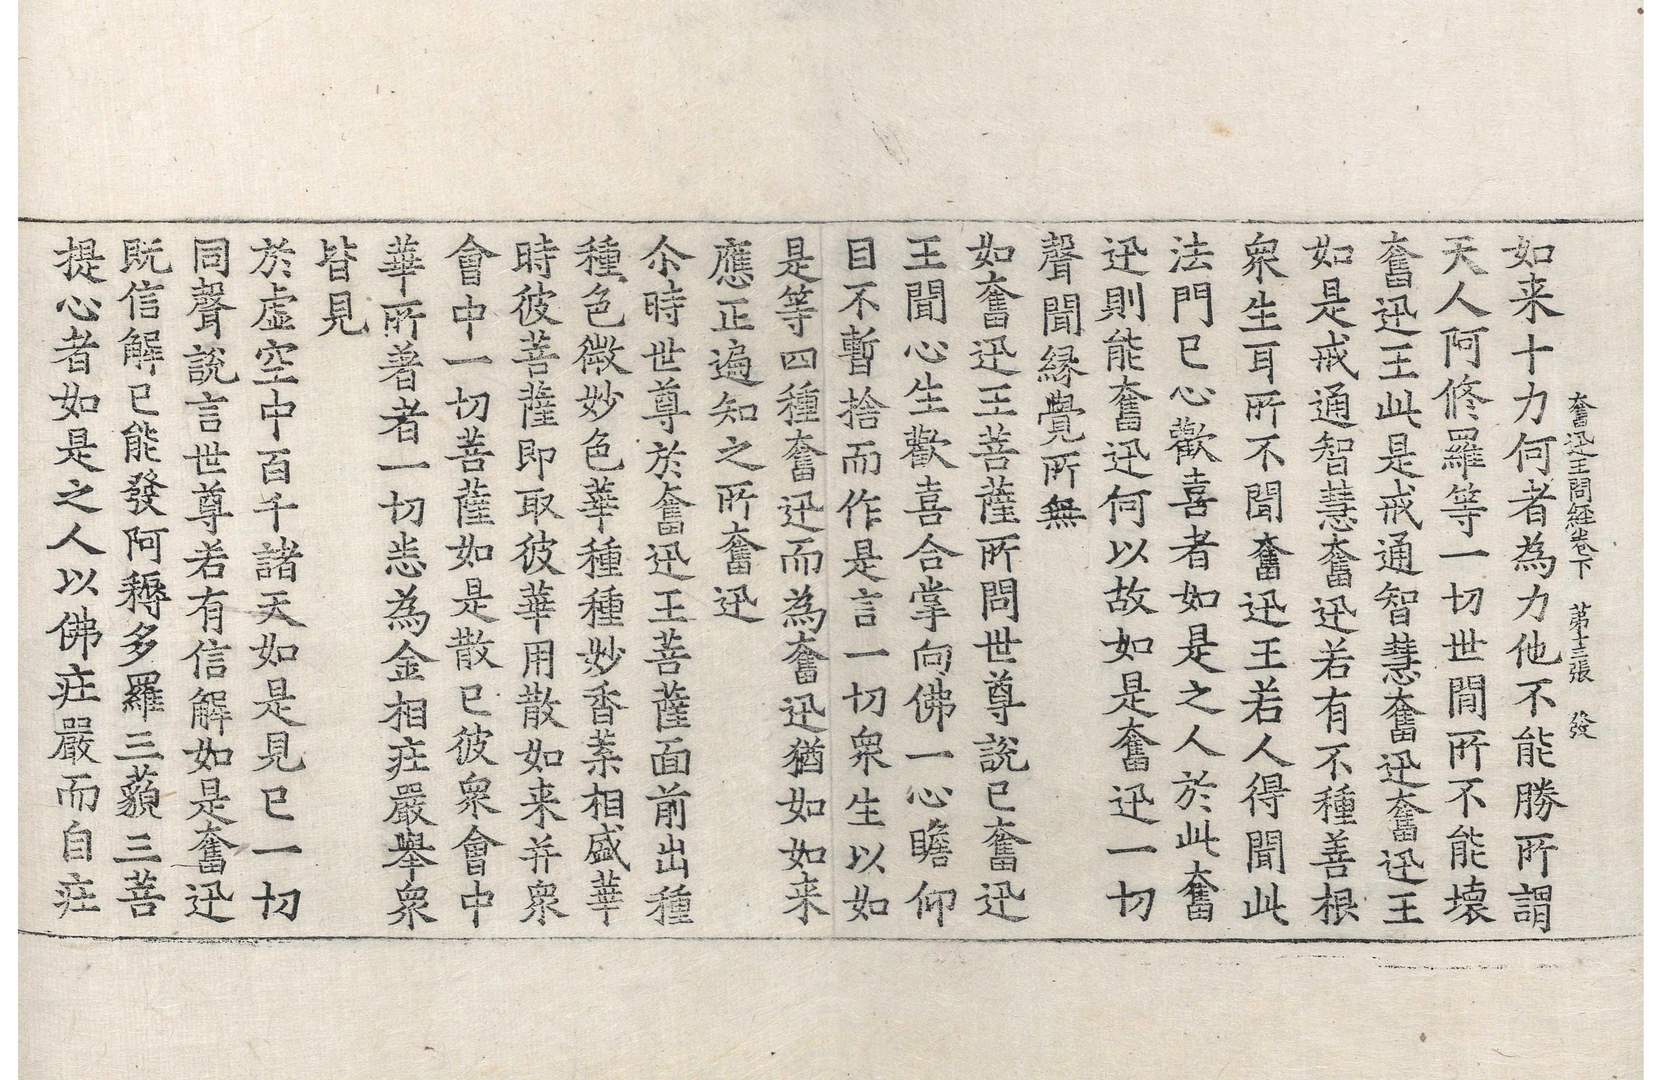 奮迅王問經卷下　第十三張　發
如来十力何者為力他不能勝所謂
天人阿修羅等一切世間所不能壞
奮迅王此是戒通智慧奮迅奮迅王
如是戒通智慧奮迅若有不種善根
衆生耳所不聞奮迅王若人得聞此
法門已心歡喜者如是之人於此奮
迅則能奮迅何以故如是奮迅一切
聲聞縁覺所無
如奮迅王菩薩所問世尊說已奮迅
王聞心生歡喜合掌向佛一心瞻仰
目不暫捨而作是言一切衆生以如
是等四種奮迅而為奮迅猶如如来
應正遍知之所奮迅
尒時世尊於奮迅王菩薩面前出種
種色微妙色華種種妙香葇相盛華
時彼菩薩即取彼華用散如来并衆
會中一切菩薩如是散已彼衆會中
華所著者一切悉為金相莊嚴舉衆
皆見
於虛空中百千諸天如是見已一切
同聲說言世尊若有信解如是奮迅
既信解已能發阿耨多羅三藐三菩
提心者如是之人以佛莊嚴而自莊